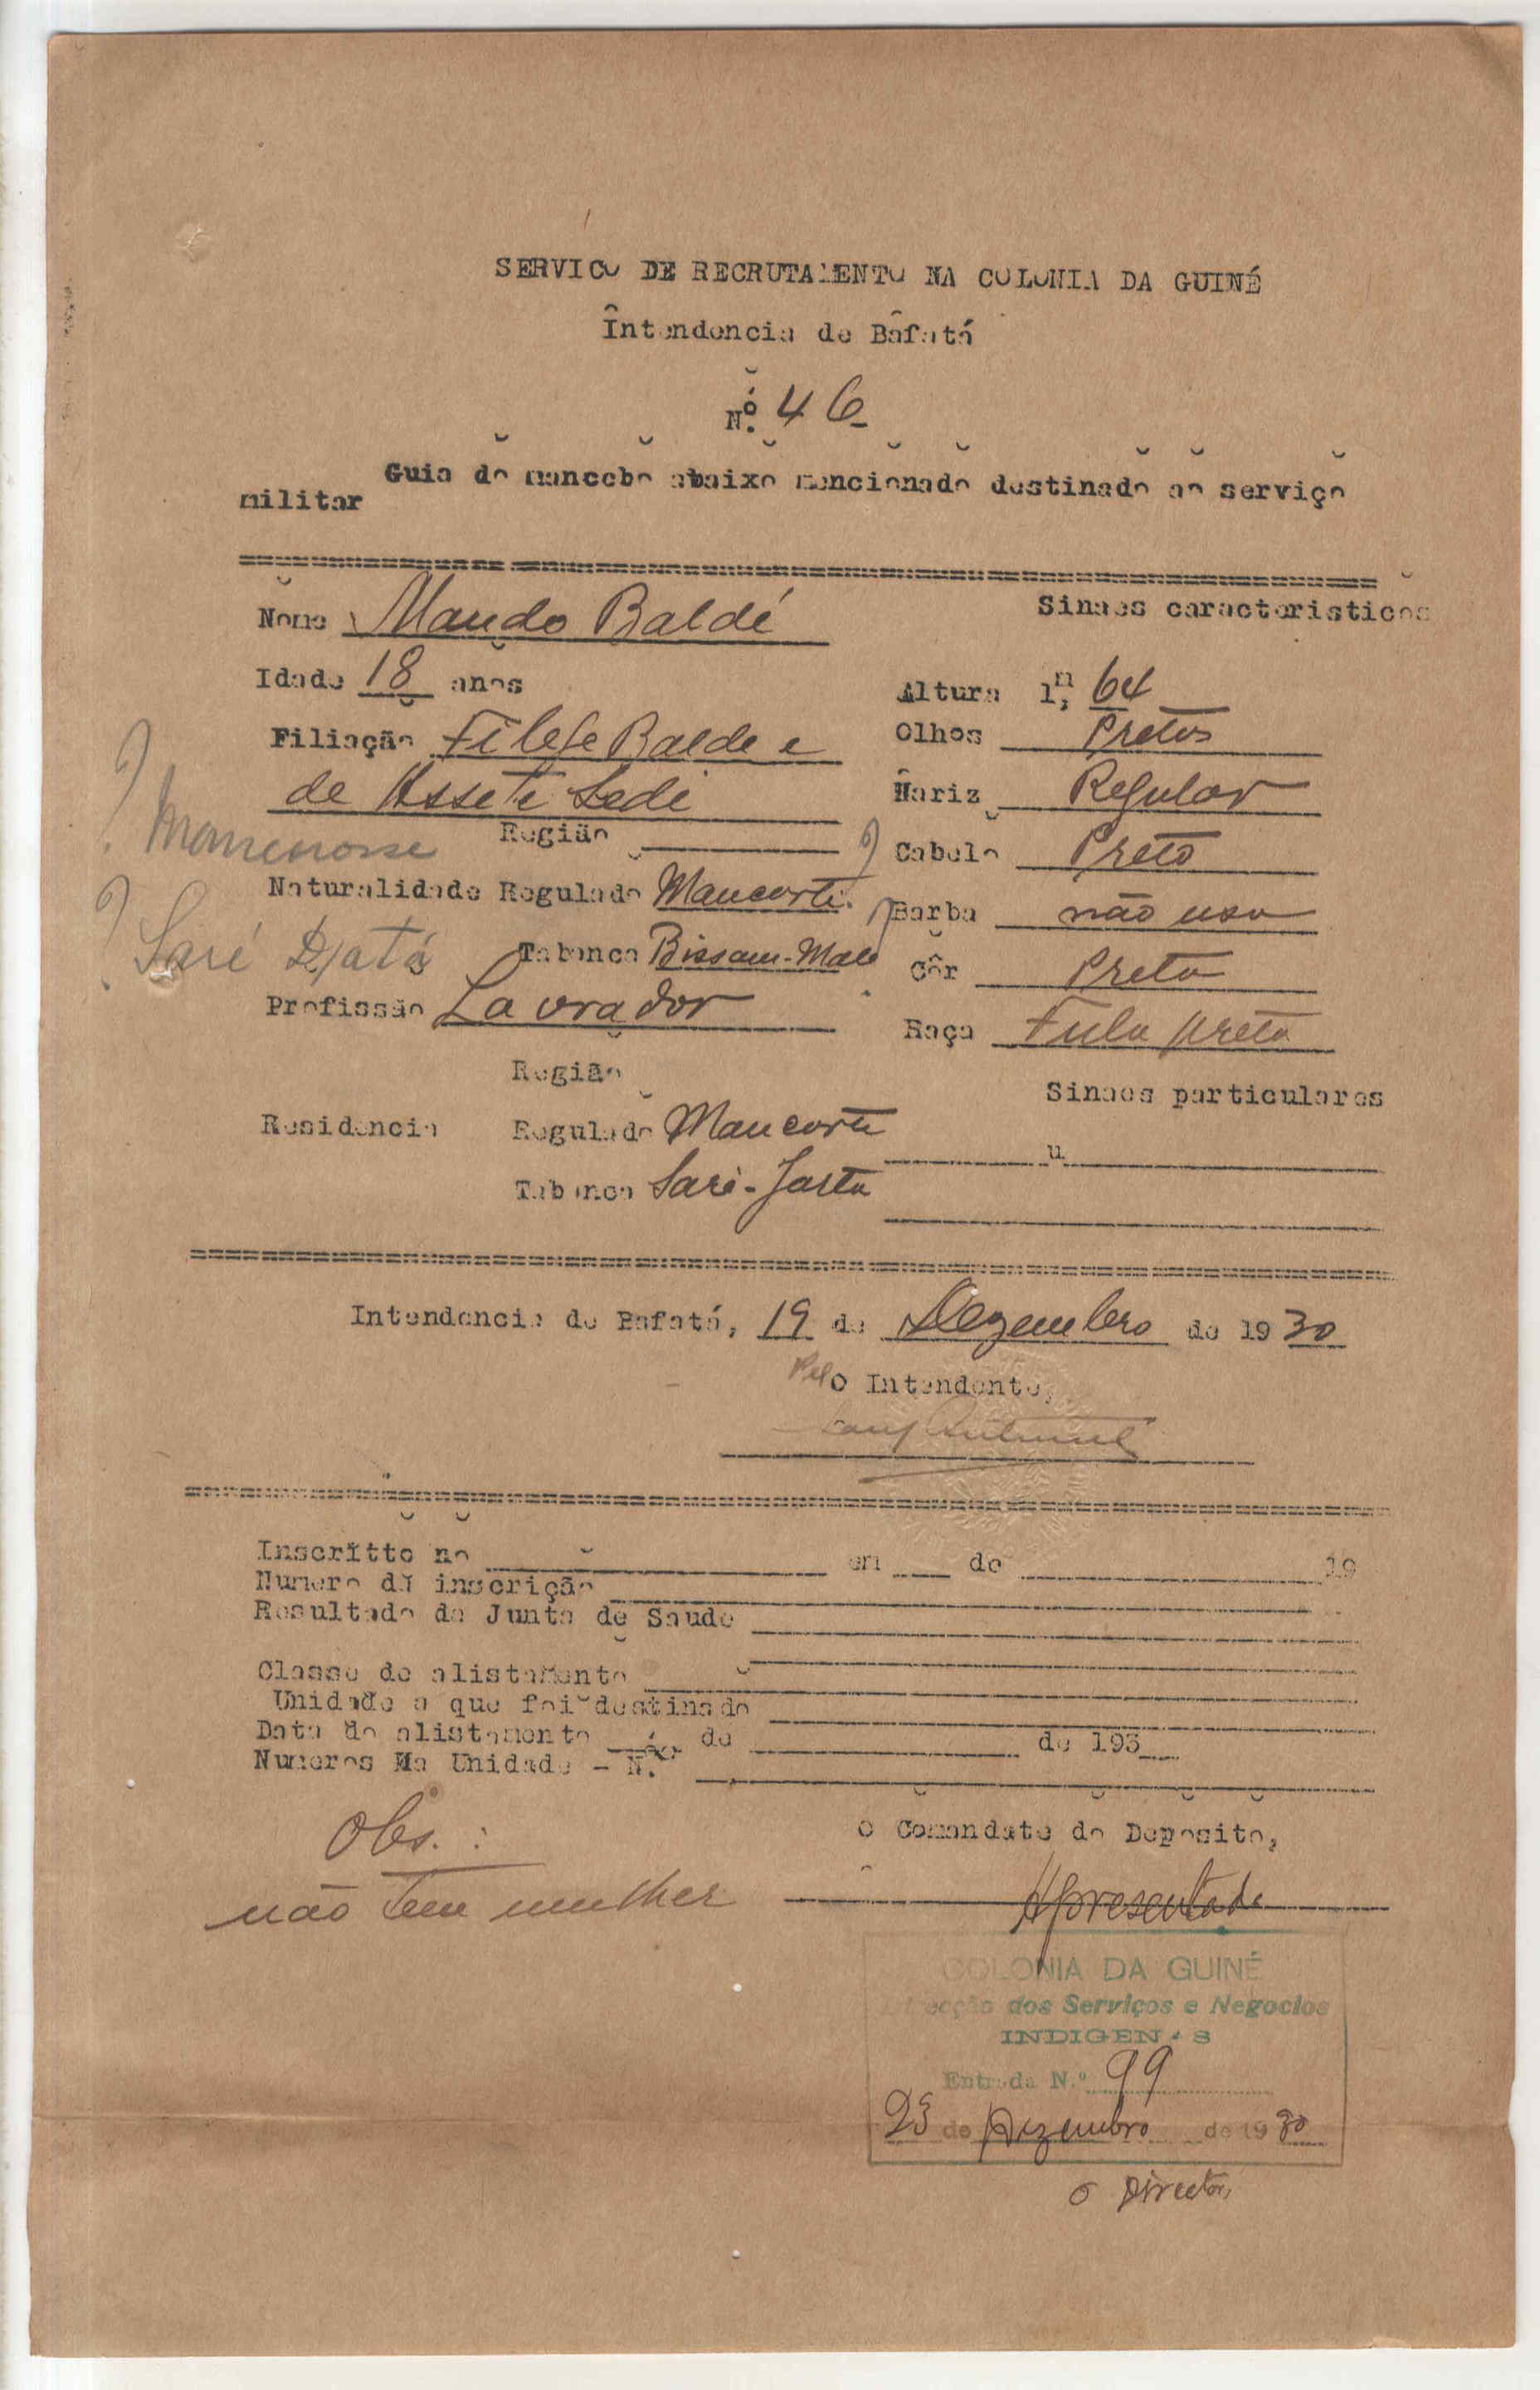 SERVICO DE RECRUTAMENTO NA COLONIA DA GUINÉ
Intendencia de Bafatá
Nº. 46
Guia do mancebo abaixo mencionado destinado ao serviço
militar
Nome Mando Baldé
Sinaes caracteristicos
Idade 18 anos
Altura 1,m 64
Filiação Filefe Balde e
Olhos Pretos
de Assete Sedi
Nariz Regular
Região
Cabelo Preto
Naturalidade Regulado Mancorte.
Barba não usa
Saré Djatá
Tabanca Bissau-Male
Côr Preta
Profissão Lavrador
Raça Fula preta
Região
Sinaes particulares
Residencia Regulado Mancorte
Tabanca Saré-Jarta
Intendencia de Bafatá, 19 de Dezembro de 1930
Pelo Intendente,
Inscritto no em de 19
Numero da inscrição
Resultado da Junta de Saude
Classe de alistamento
Unidade a que foi destinado
Data do alistamento de de 193
Numeros Na Unidade - N.º
Obs. :
não tem mulher
O Comandate do Deposito,
Apresentado
COLONIA DA GUINÉ
Direcção dos Serviços e Negocios
INDIGENAS
Entrada N.º 99
23 de Dezembro de 1930
O Director,